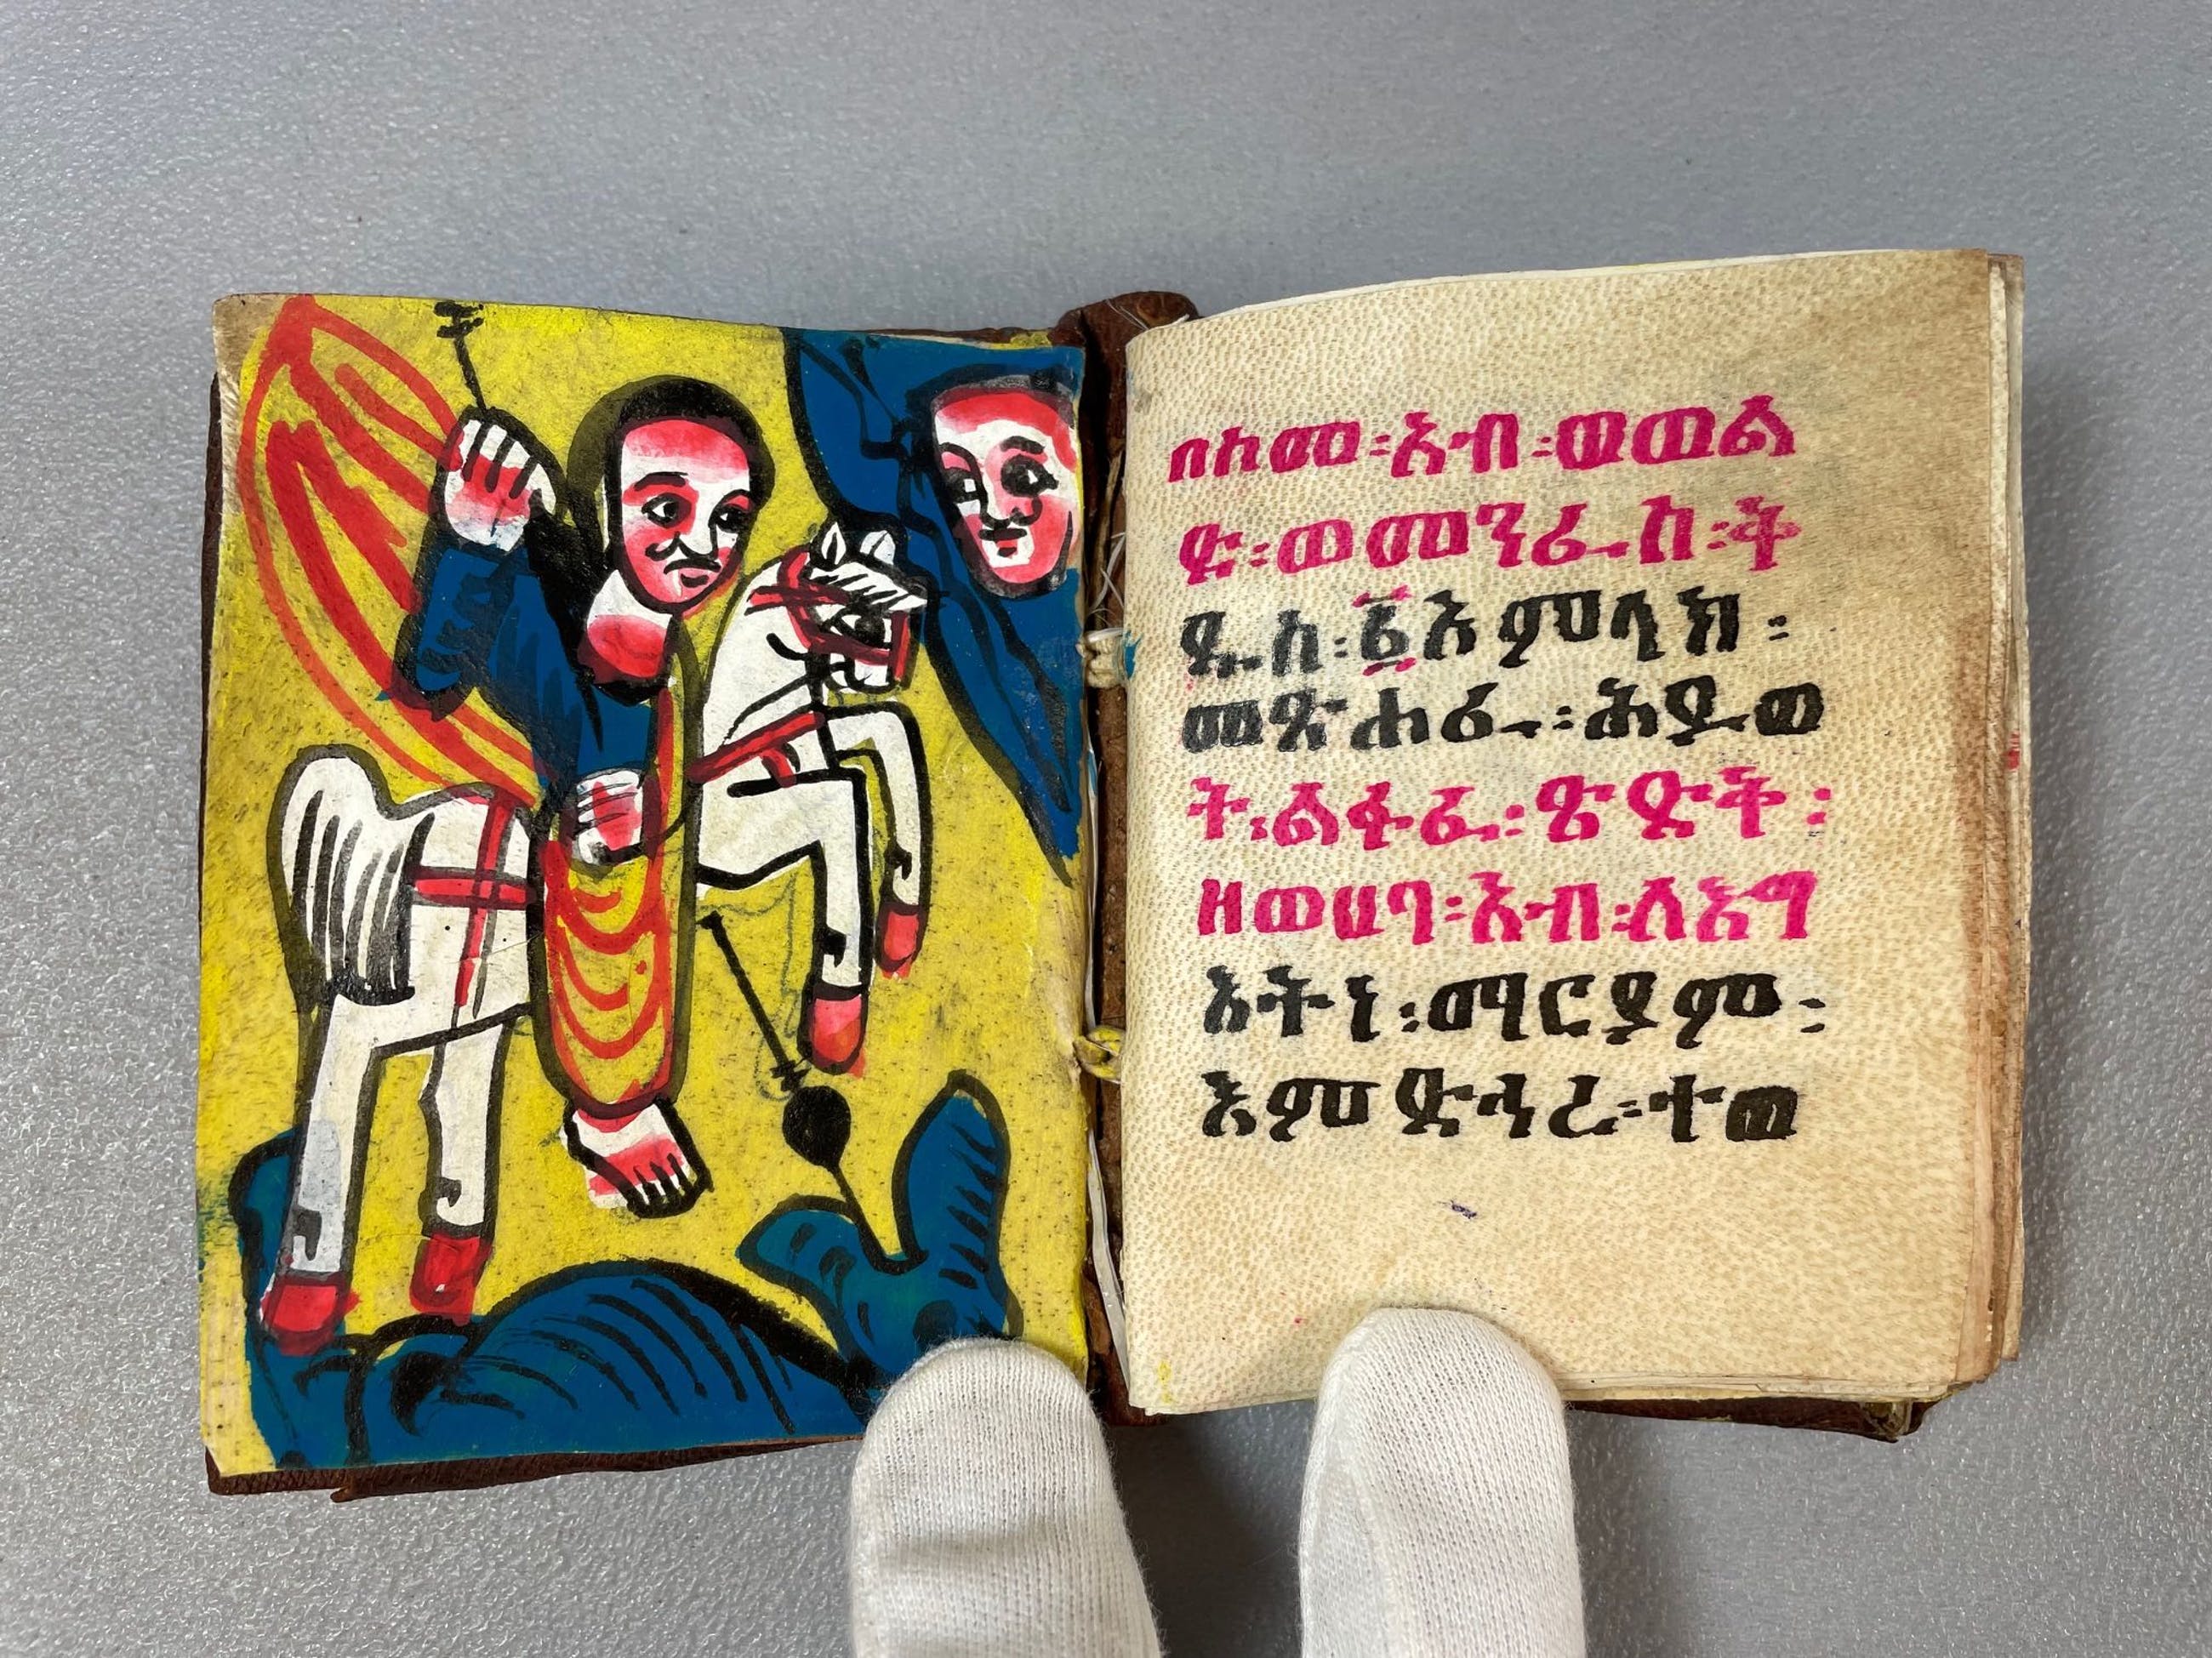 በስመ፡አብ፡ወወል
ድ፡ወመንፈስ፡ቅ
ዱስ፡፩አምላክ፡
መጽሐፈ፡ሕይወ
ት፡ልፋፈ፡ጽድቅ፡
ዘወሀባ፡አብ፡ለእግ
እትነ፡ማርያም፡
እምድኅረ፡ተወ